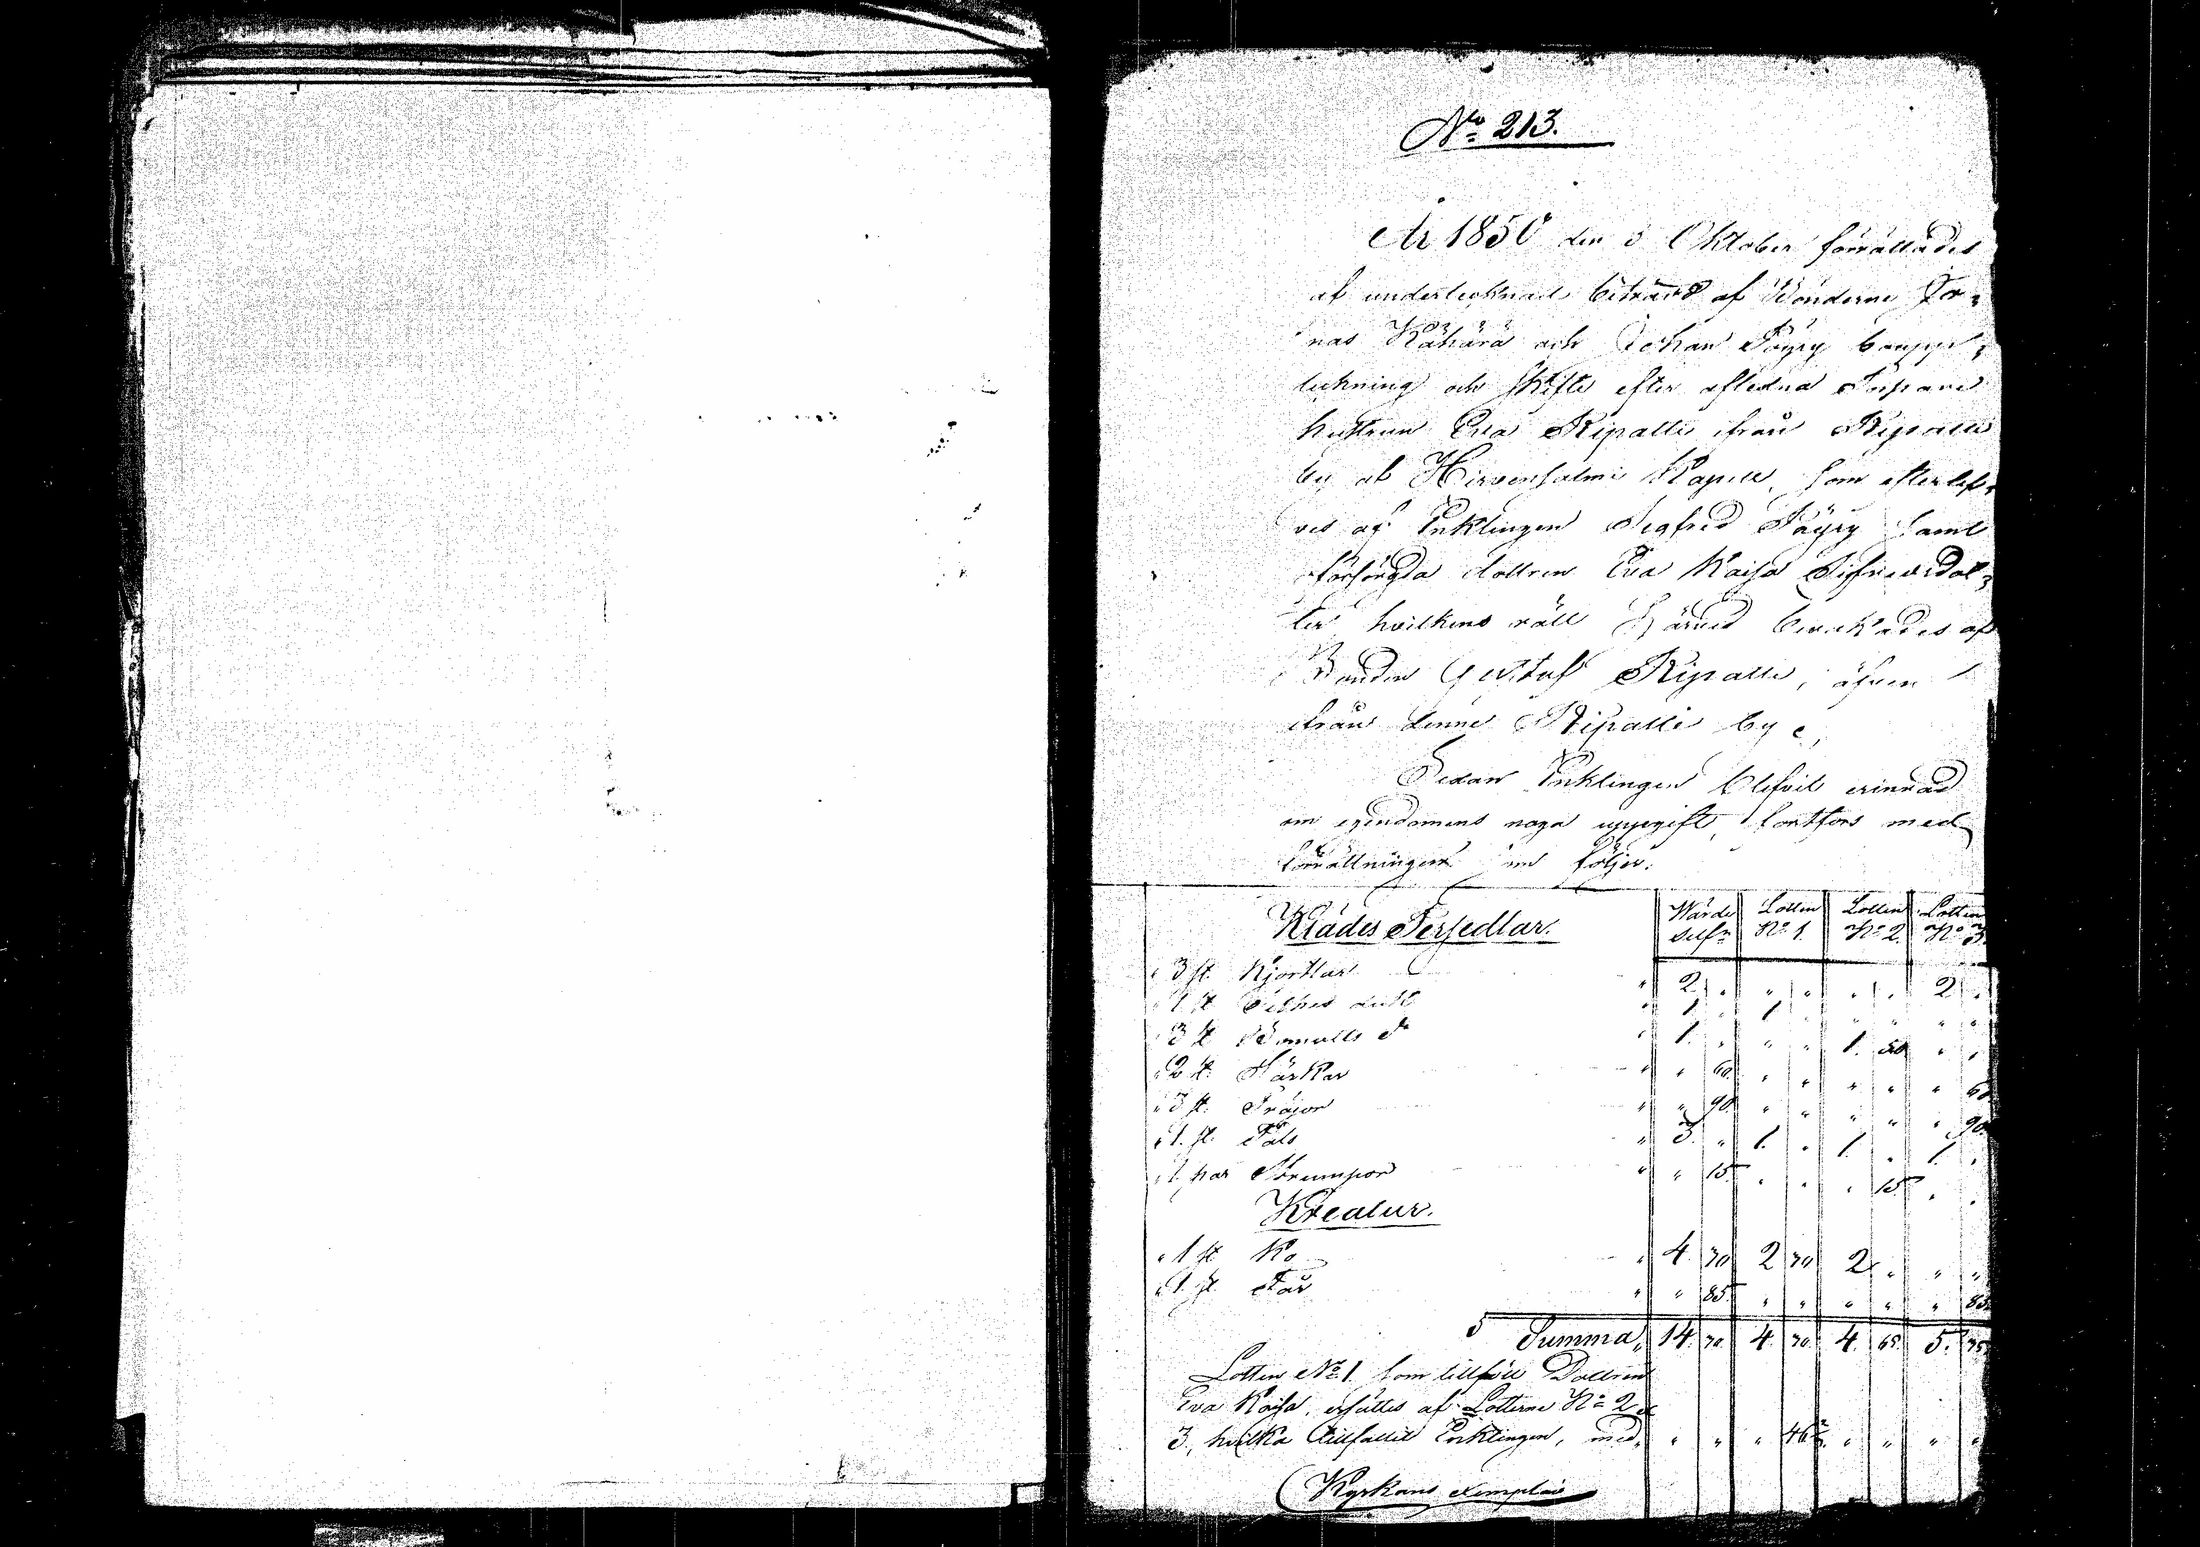 No 213.
År 1850 den 3 Oktober förrättades
af undertecknad biträdd af Bönderne Jo-
nas Kähärä och Johan Pöyry bouppt-
teckning och skifte efter aflidna Inhyses
hustrun Eva Ripatti ifrån Ripatti
by af Hirvensalmi Kapell, som efterlef-
ves af Enklingen Sigfred Pöyry samt
oförsörgda dottren Eva Kaisa Sigfredsdot-
ter hvilkens rätt härvid bevakades af
Bonden Gustaf Ripatti, äfven
ifrån denne Ripatti by.
Sedan Enklingen blifvit erinrad
om egendomens noga uppgift, fortfors med
förrättningen som följer:
Klädes Persedlar. Värde Silfr Lotten No 1. Lotten No 2. Lotten No 3.
3 st. Kjortlar " 2. " " " " " 2 "
1 st. " 1. " 1. " " " " "
3 st. Bomulls do " 1. " " 1. 50 " "
2 st. Särkar " " 60. " " " " " 60
3 st. Tröjor " " 90. " " " " " 90.
1. st. Päls " 3. " 1. " 1. " 1. "
1. par Strumpor " " 15 " " " 15 " "
Kreatur.
1 st Ko " 4 70 2 70 2 " " "
1. st. Får " " 85. " " " " " 85.
Summa, 14. 70. 4. 70. 4. 65. 5. 35.
Lotten No 1. som tillföll Dottren
Eva Kaisa, ersättes af Lotterne No 2 &
3, hvilka tillfallit Enklingen, med " " " 46 2/3. " " " "
Kyrkans exemplar